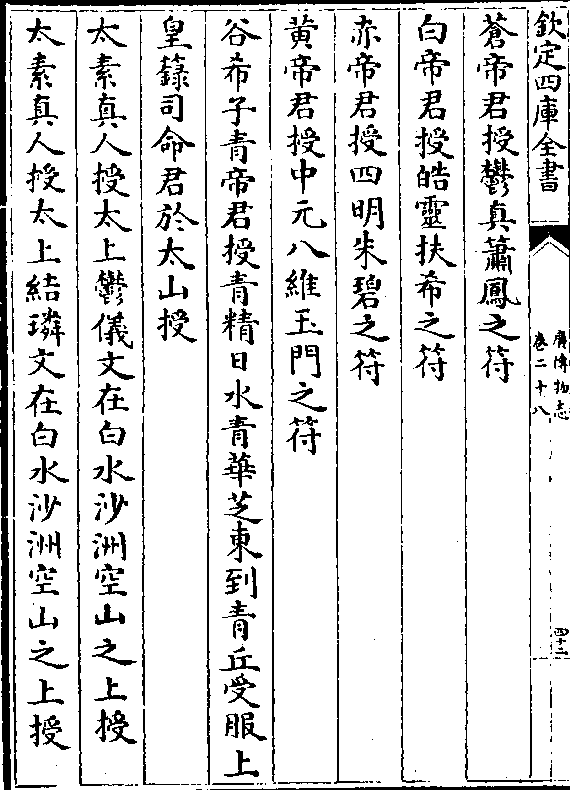 欽定四庫全書
廣博物志
卷二十八
四十二
蒼帝君授鬱真簫鳳之符
白帝君授皓靈扶希之符
赤帝君授四明朱碧之符
黄帝君授中元八維玉門之符
谷希子青帝君授青精日水青華芝東到青丘受服上
皇籙司命君於太山授
太素真人授太上鬱儀文在白水沙洲空山之上授
太素真人授太上結璘文在白水沙洲空山之上授